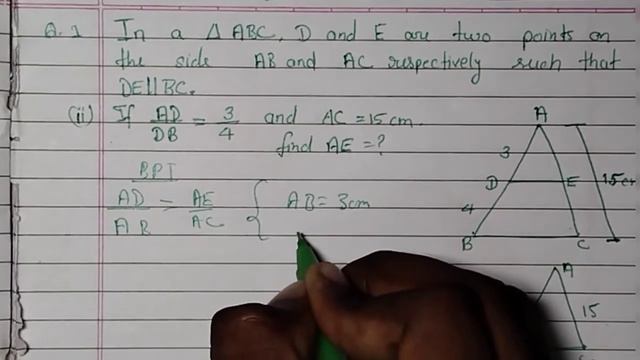 Q.1 In a Δ ABC, D and E are two points on
the side AB and AC respectively such that
DE||BC.
(ii) If AD/DB = 3/4 and AC = 15 cm.
find AE = ?
BPT
AD/AB = AE/AC { AB = 3cm
A
3
D E 15cm
4
B C
A
15